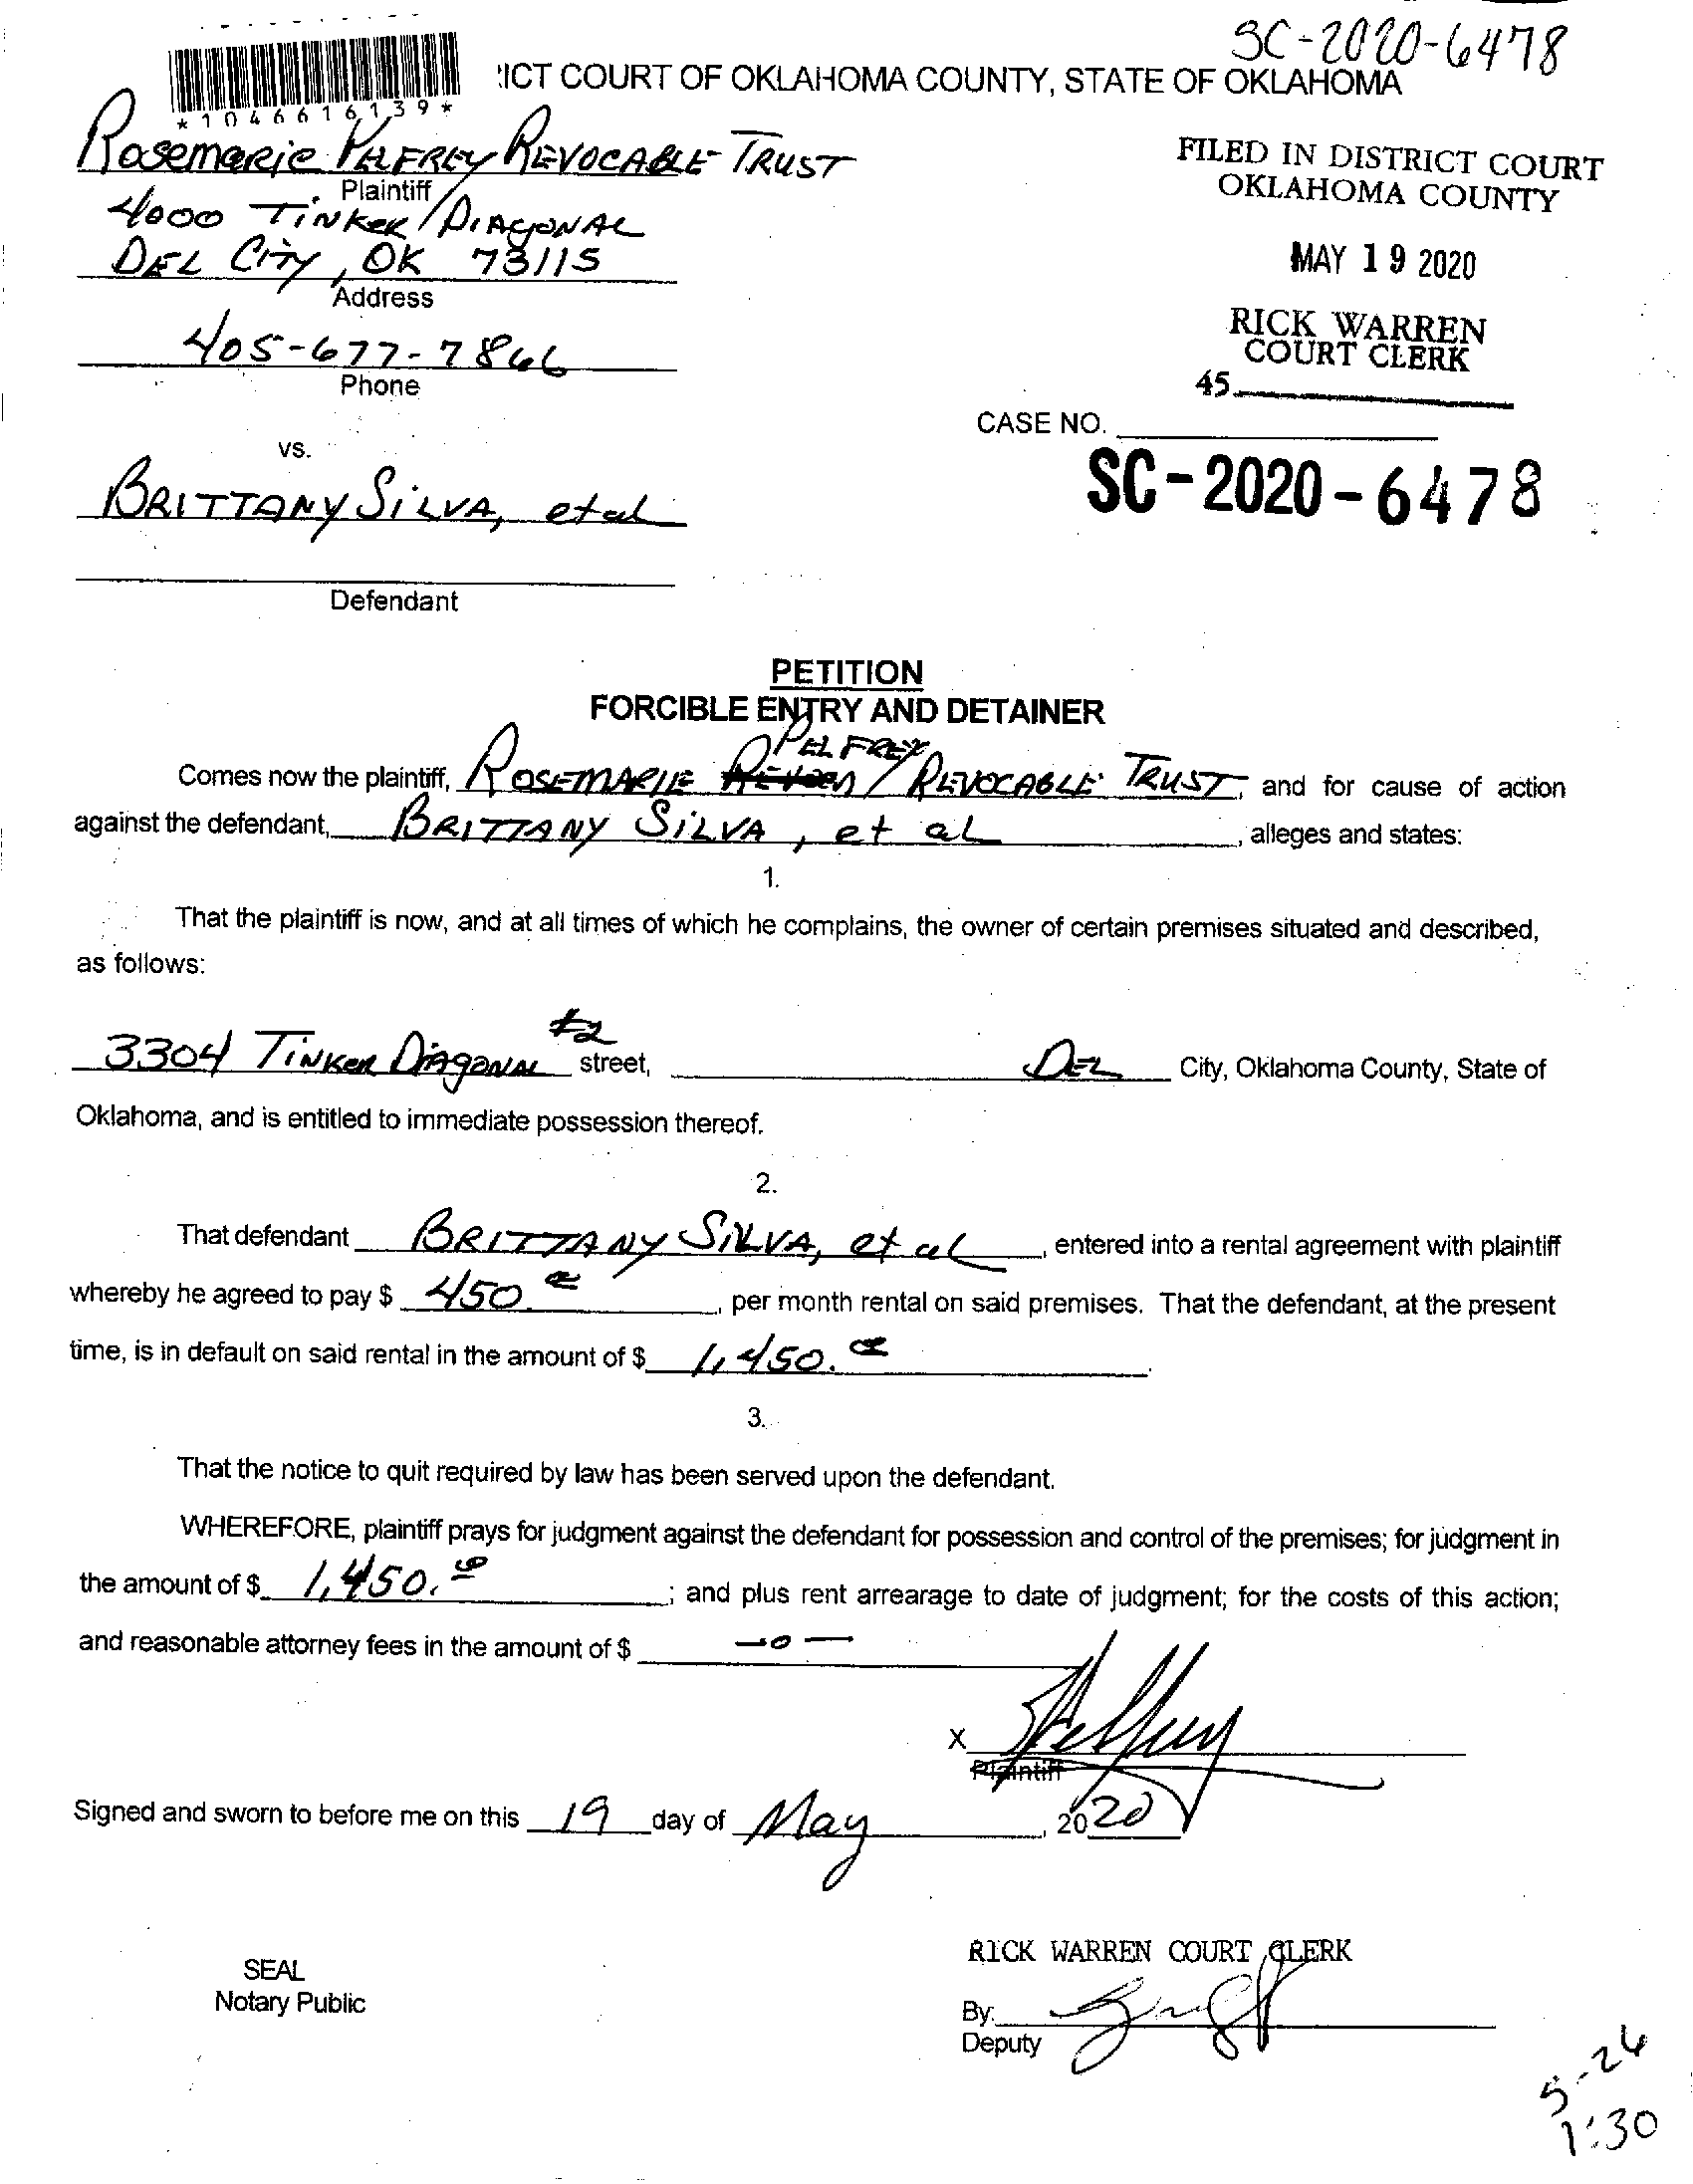 SC-2020-6478
ICT COURT OF OKLAHOMA COUNTY, STATE OF OKLAHOMA
*1046616139*
Rosemarie PELFREY REVOCABLE TRUST
Plaintiff
4000 TINKER DIAGONAL
DEL CITY, OK 73115
Address
405-677-7866
Phone
FILED IN DISTRICT COURT
OKLAHOMA COUNTY
MAY 19 2020
RICK WARREN
COURT CLERK
45
CASE NO.
SC-2020-6478
vs.
BRITTANY SILVA, et al
Defendant
PETITION
FORCIBLE ENTRY AND DETAINER
PELFREY
Comes now the plaintiff, ROSEMARIE REVOCABLE TRUST, and for cause of action
against the defendant, BRITTANY SILVA, et al, alleges and states:
1.
That the plaintiff is now, and at all times of which he complains, the owner of certain premises situated and described,
as follows:
3304 TINKER DIAGONAL #2 street, DEL City, Oklahoma County, State of
Oklahoma, and is entitled to immediate possession thereof.
2.
That defendant BRITTANY SILVA, et al, entered into a rental agreement with plaintiff
whereby he agreed to pay $ 450. per month rental on said premises. That the defendant, at the present
time, is in default on said rental in the amount of $ 1,450.
3.
That the notice to quit required by law has been served upon the defendant.
WHEREFORE, plaintiff prays for judgment against the defendant for possession and control of the premises; for judgment in
the amount of $ 1,450. ; and plus rent arrearage to date of judgment; for the costs of this action;
and reasonable attorney fees in the amount of $ -0-
X
Plaintiff
Signed and sworn to before me on this 19 day of May, 2020
SEAL
Notary Public
RICK WARREN COURT CLERK
By:
Deputy
5-26
1:30